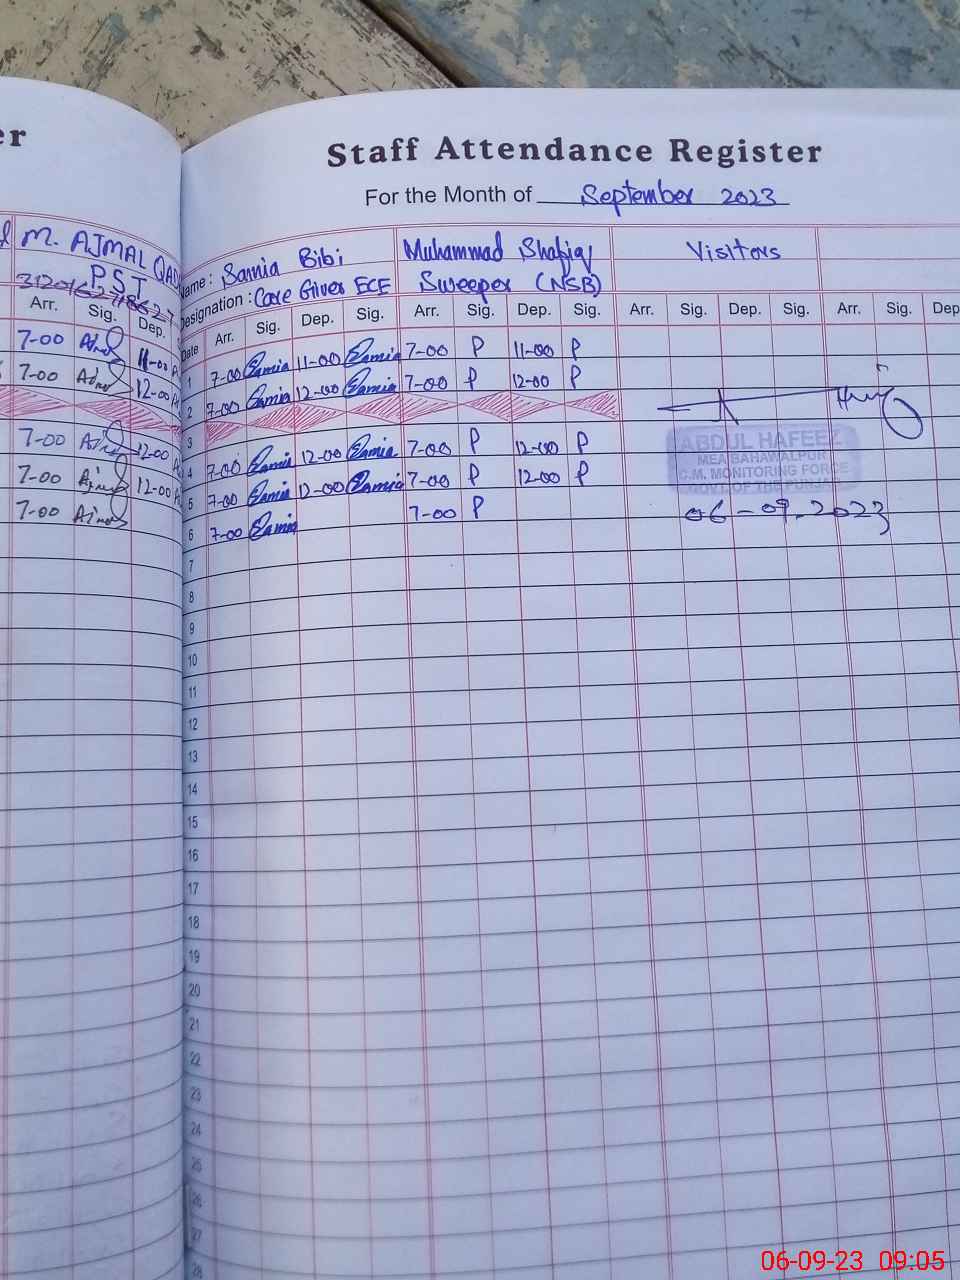 er
M. AJMAL QAD
PST
Arr. Sig. Dep.
7-00 11-00
7-00 12-00
7-00 12-00
7-00 12-00
7-00
Staff Attendance Register
For the Month of September 2023
Name: Samia Bibi Muhammad Shafiq Visitors
Designation: Care Giver ECE Sweeper (NSB)
Date Arr. Sig. Dep. Sig. Arr. Sig. Dep. Sig. Arr. Sig. Dep. Sig. Arr. Sig. Dep
1 7-00 Samia 11-00 Samia 7-00 P 11-00 P
2 7-00 Samia 12-00 Samia 7-00 P 12-00 P
3
4 7-00 Samia 12-00 Samia 7-00 P 12-00 P
5 7-00 Samia 12-00 Samia 7-00 P 12-00 P
6 7-00 Samia 7-00 P
ABDUL HAFEEZ
MEA BAHAWALPUR
C.M. MONITORING FORCE
GOVT. OF THE PUNJAB
06-09-2023
7
8
9
10
11
12
13
14
15
16
17
18
19
20
21
22
23
24
25
26
27
28
06-09-23 09:05